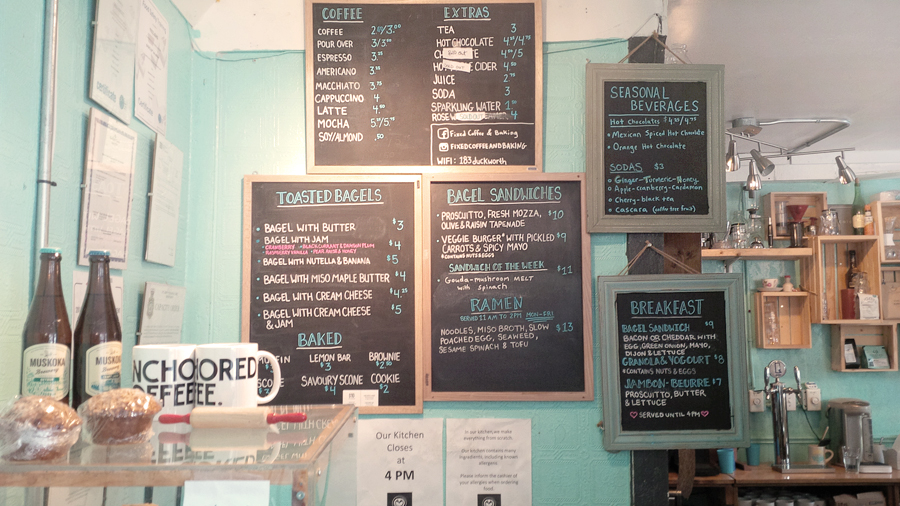 COFFEE
COFFEE
POUR OVER 3/3.50
ESPRESSO 3.25
AMERICANO 3.50
MACCHIATO 3.75
CAPPUCCINO 4
LATTE 4.50
MOCHA
SOY/ALMOND .50
EXTRAS
TEA 3
HOT CHOCOLATE 4.25/4.75
4.50/5
CIDER 4.50
JUICE 2.75
SODA 3
SPARKLING WATER
4
Fixed Coffee & Baking
FIXEDCOFFEEANDBAKING
WIFI: 183duckworth
TOASTED BAGELS
BAGEL WITH BUTTER $3
BAGEL WITH JAM $4
BAGEL WITH NUTELLA & BANANA $5
BAGEL WITH MISO MAPLE BUTTER $4
BAGEL WITH CREAM CHEESE $4.25
BAGEL WITH CREAM CHEESE & JAM $5
BAKED
LEMON BAR $3
BROWNIE $2.50
SAVOURY SCONE $4
COOKIE $2
BAGEL SANDWICHES
PROSCUITTO, FRESH MOZZA, $10
OLIVE & RAISIN TAPENADE
VEGGIE BURGER* WITH PICKLED $9
CARROTS & SPICY MAYO
*CONTAINS NUTS & EGGS
SANDWICH OF THE WEEK $11
Gouda-mushroom melt
with spinach
RAMEN
SERVED 11 AM TO 2PM MON-FRI
NOODLES, MISO BROTH, SLOW $13
POACHED EGG, SEAWEED,
SESAME SPINACH & TOFU
SEASONAL
BEVERAGES
Hot Chocolates $4.25/4.75
Mexican Spiced Hot Chocolate
Orange Hot Chocolate
SODAS $3
Ginger-Turmeric-Honey
Apple-cranberry-cardamon
Cherry-black tea
Cascara (coffee tree fruit)
BREAKFAST
BAGEL SANDWICH $9
BACON OR CHEDDAR WITH
EGG, GREEN ONION, MAYO,
DIJON & LETTUCE
GRANOLA & YOGOURT* $8
*CONTAINS NUTS & EGGS
JAMBON-BEURRE $7
PROSCIUTTO, BUTTER
& LETTUCE
♡ SERVED UNTIL 4PM ♡
Our Kitchen
Closes
at
4 PM
In our kitchen we make
everything from scratch.
Our kitchen contains many
ingredients, including known
allergens.
Please inform the cashier of
your allergies when ordering
food.
MUSKOKA
MUSKOKA
NCHORED
COFFEE.